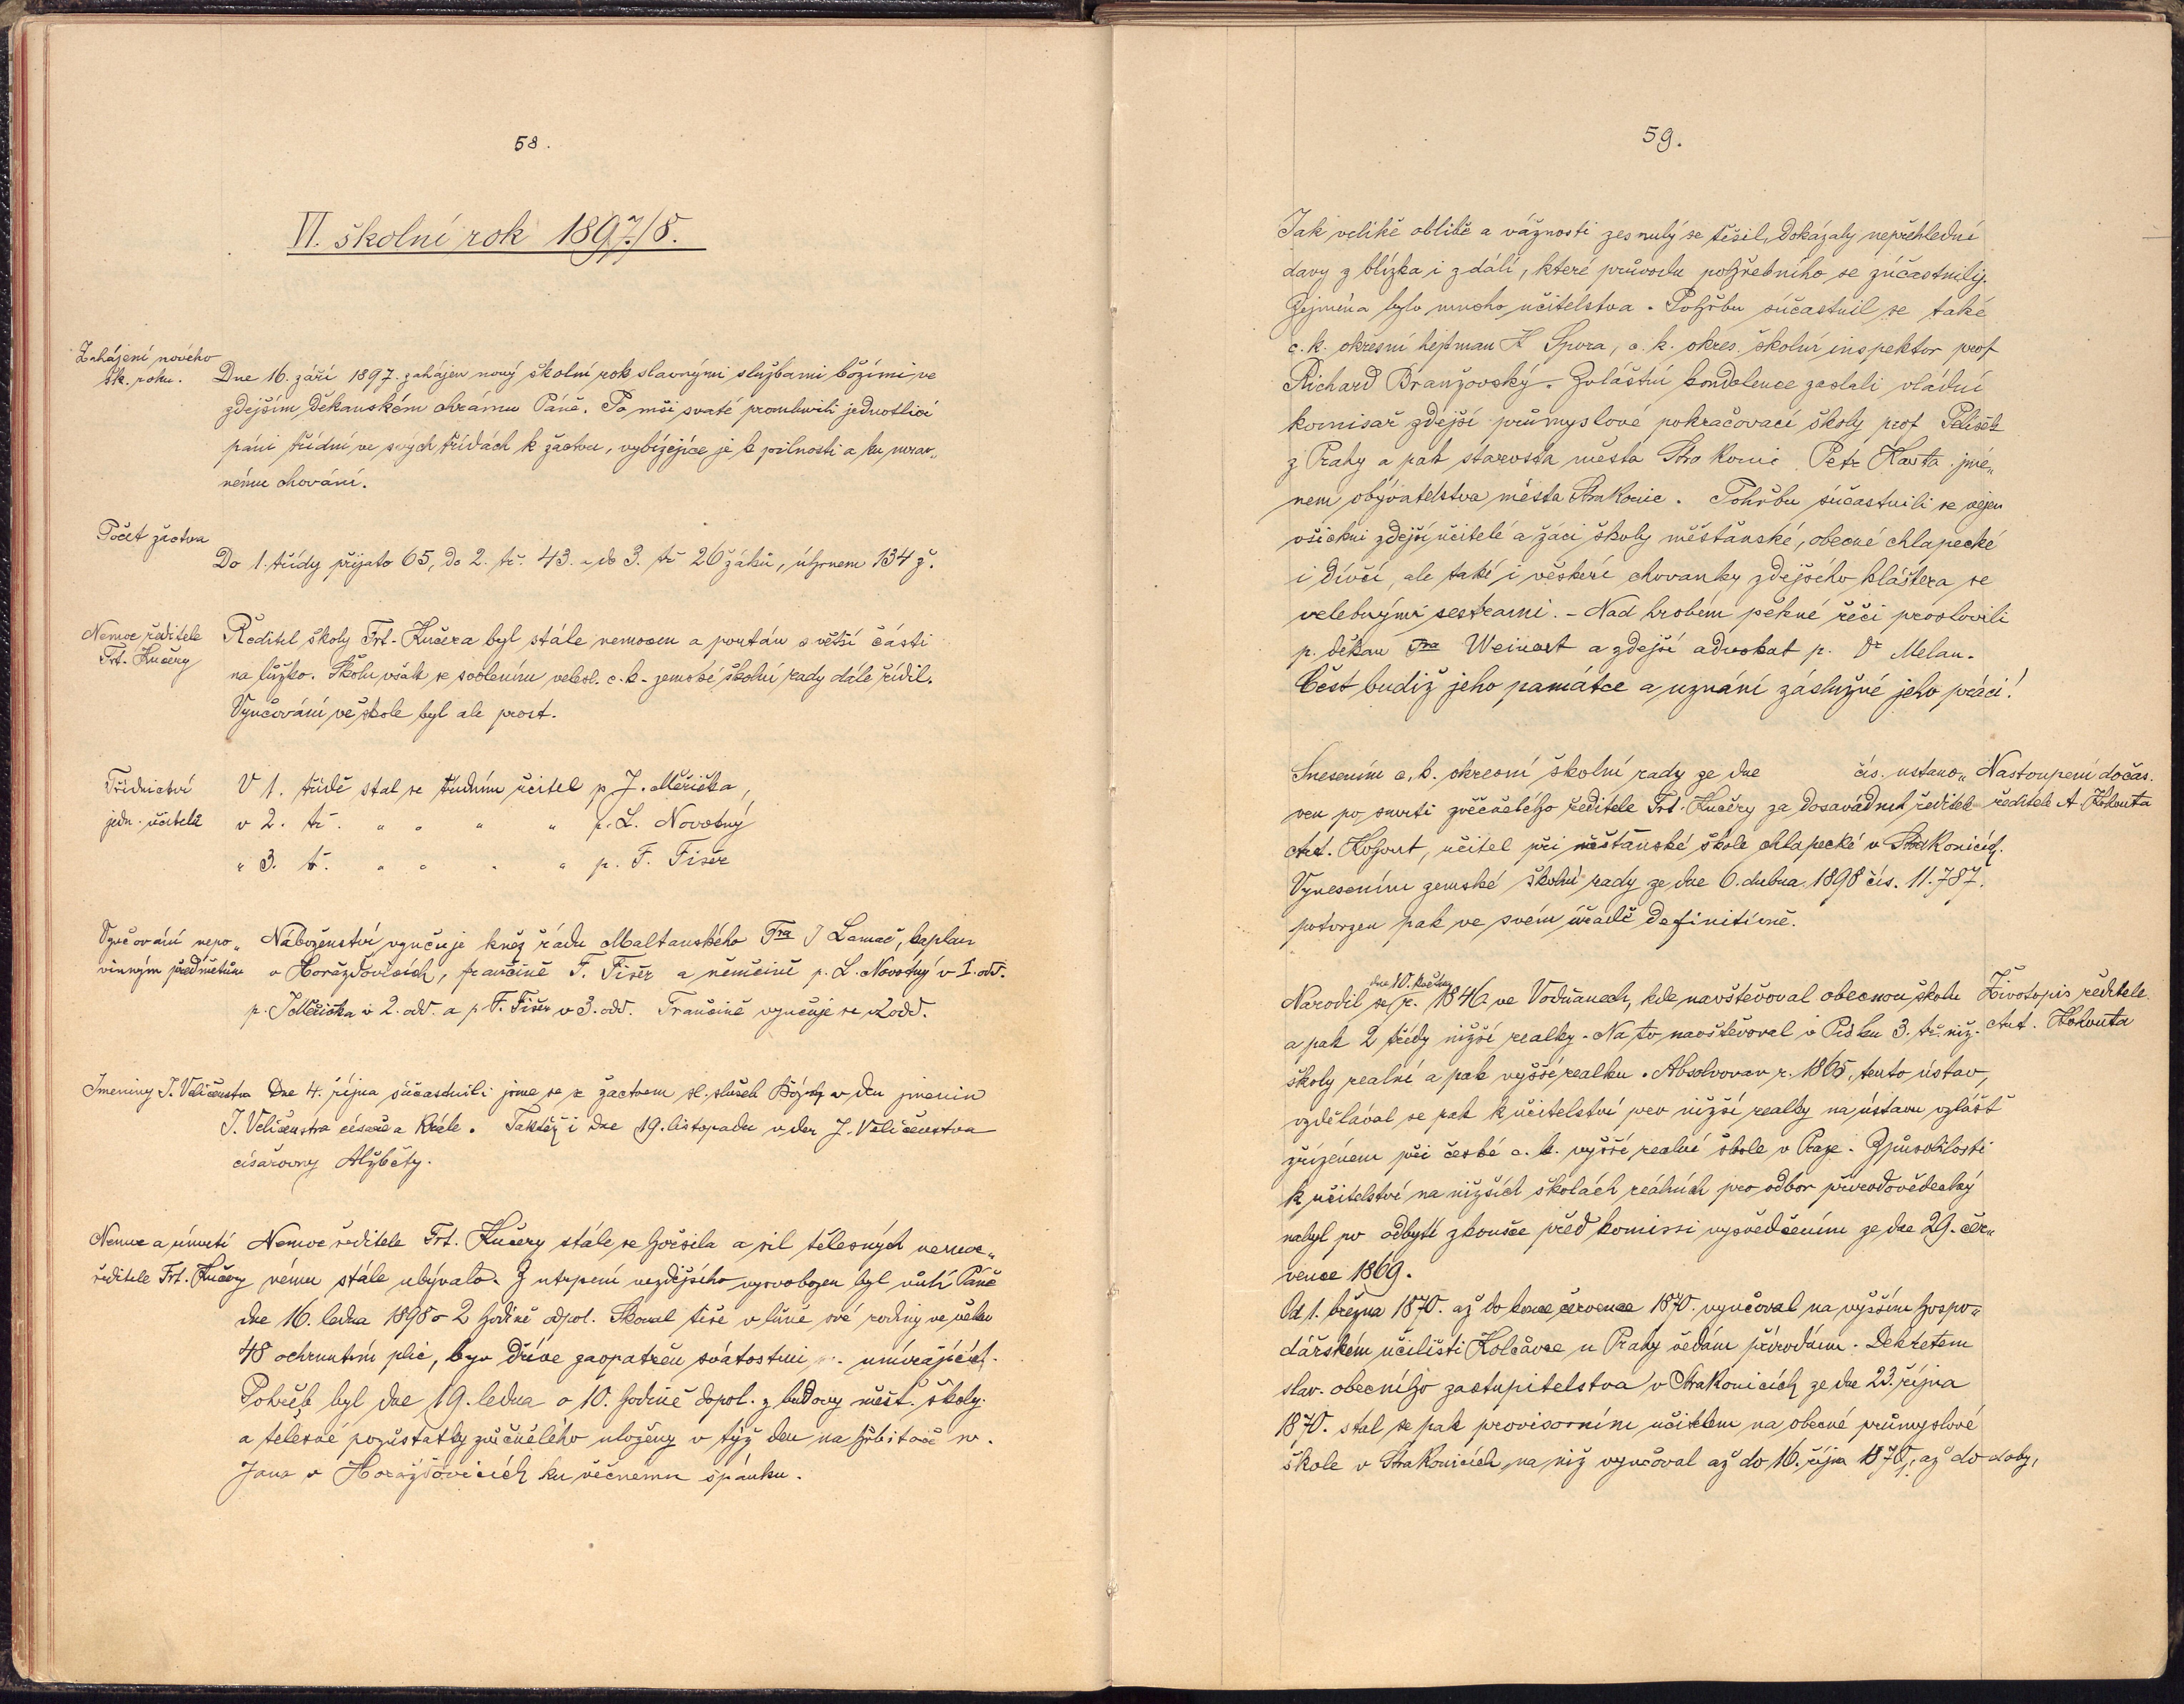 58.
VI. školní rok 1897/8.
Zahájení nového
šk. roku.
Dne 16. září 1897. zahájen nový školní rok slavnými službami božími ve
zdejším děkanském chrámu Páně. Po mši svaté promluvili jednotliví
páni třídní ve svých třídách k žactvu, vybízejíce je k pilnosti a ku mrav„
nému chování.
Počet žactva
Do 1. třídy přijato 65, do 2. tř. 43. a do 3. tř 26 žáků, úhrnem 134 ž.
Nemoc ředitele
Frt. Kučery
Ředitel školy Frt. Kučera byl stále nemocen a poután z větší části
na lůžko. Školu však se svolením velesl. c. k. zemské školní rady dále řídil.
Vyučování ve škole byl ale prost.
Třídnictví
jedn. učitelů
V 1. třídě stal se třídním učitel p. J. Měřička,
v 2. tř. „ „ „ „ p. L. Novotný
„ 3. tř. „ „ „ „ p. F. Fišer
Vyučování nepo„
vinným předmětům
Náboženství vyučuje kněz řádu Maltanského Fra J Lamač, kaplan
v Horažďovicích, frančině F. Fišer a němčině p. L. Novotný v I. odd.
p. J Měřička v 2. odd. a p. F. Fišer v 3. odd. Frančině vyučuje se v 2 odd.
Jmeniny J. Veličenstva
Dne 4. října súčastnili jsme se s žactvem sl. služeb Božých v den jmenin
J. Veličenstva císaře a Krále. Taktéž i dne 19. listopadu v den J. Veličenstva
císařovny Alžběty.
Nemoc a úmrtí
ředitele Frt. Kučery
Nemoc ředitele Frt. Kučery stále se horšila a sil tělesných nemoc„
nému stále ubývalo. Z utrpení vezdejšího vysvobozen byl vůlí Páně
dne 16. ledna 1898 o 2 hodině odpol. Skonal tiše v lůně své rodiny ve věku
48 ochrnutím plic, byv dříve zaopatřen svátostmi umírajících.
Pohřeb byl dne 19. ledna o 10. hodině dopol. z budovy měšť. školy
a tělesné pozůstatky zvěčnělého uloženy v týž den na hřbitově sv.
Jana v Horažďovicích ku věčnému spánku.
59.
Jak veliké oblibě a vážnosti zesnulý se těšil, dokázaly nepřehledné
davy z blízka i z dálí, které průvodu pohřebního se zúčastnily.
Zejména bylo mnoho učitelstva. Pohřbu súčastnil se také
c. k. okresní hejtman K Spora, c. k. okres. školní inspektor prof
Richard Branžovský. Zvláštní kondolence zaslali vládní
komisař zdejší průmyslové pokračovací školy prof Pelíšek
z Prahy a pak starosta města Strakonic Petr Kavta jmé„
nem obývatelstva města Strakonic. Pohřbu súčastnili se nejen
všichni zdejší učitelé a žáci školy měšťanské, obecné chlapecké
i dívčí, ale také i veškeré chovanky zdejšího kláštera se
velebnými sestrami. - Nad hrobem pěkné řeči proslovili
p. děkan Fra Weinert a zdejší advokat p. Dr Melan.
Čest budiž jeho památce a uznání záslužné jeho práci!
Snesením c. k. okresní školní rady ze dne čís. ustano„
ven po smrti zvěčnělého ředitele Frt. Kučery za dosavádního ředitele
Ant. Kohout, učitel při měšťanské škole chlapecké v Strakonicích.
Vynesením zemské školní rady ze dne 6. dubna 1898 čís. 11.787.
potvrzen pak ve svém úřadě definitivně.
Nastoupení dočas.
ředitele A. Kohouta
dne 10. května
Narodil se r. 1846 ve Vodňanech, kde navštěvoval obecnou školu
a pak 2 třídy nižší realky. Na to navštěvoval v Písku 3. tř. niž.
školy realní a pak vyšší realku. Absolvovav r. 1865. tento ústav,
vzdělával se pak k učitelství pro nižší realky na ústavu zvlášť
zřízeném při české c. k. vyšší realní škole v Praze. Způsobilosti
k učitelství na nižších školách reálních pro odbor přírodovědecký
nabyl po odbyté zkoušce před komissí vysvědčením ze dne 29. čer„
vence 1869.
Životopis ředitele
Ant. Kohouta
Od 1. března 1870. až do konce července 1870. vyučoval na vyšším hospo„
dářském učilišti Kolčavce u Prahy vědám přírodním. Dekretem
slav. obecního zastupitelstva v Strakonicích ze dne 23. října
1870. stal se pak provisorním učitelem na obecné průmyslové
škole v Strakonicích, na níž vyučoval až do 16. října 187, až do doby,